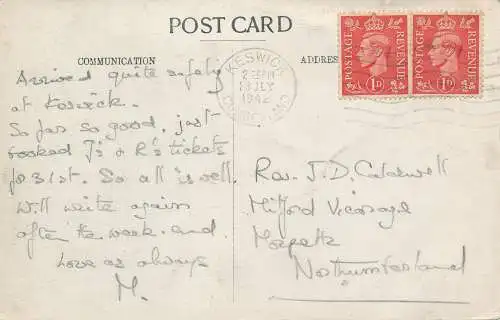 POST CARD
COMMUNICATION
ADDRES
POSTAGE REVENUE
1D
POSTAGE REVENUE
1D
KESWICK
CUMBERLAND
JLY
1942
Arrived quite safely
at Keswick.
So far so good, just
booked J's & R's tickets
for 31st. So all is well.
Will write again
after the week-end.
Love as always
M.
Rev. J. D. Calderwell
Milford Vicarage
Morpeth
Northumberland